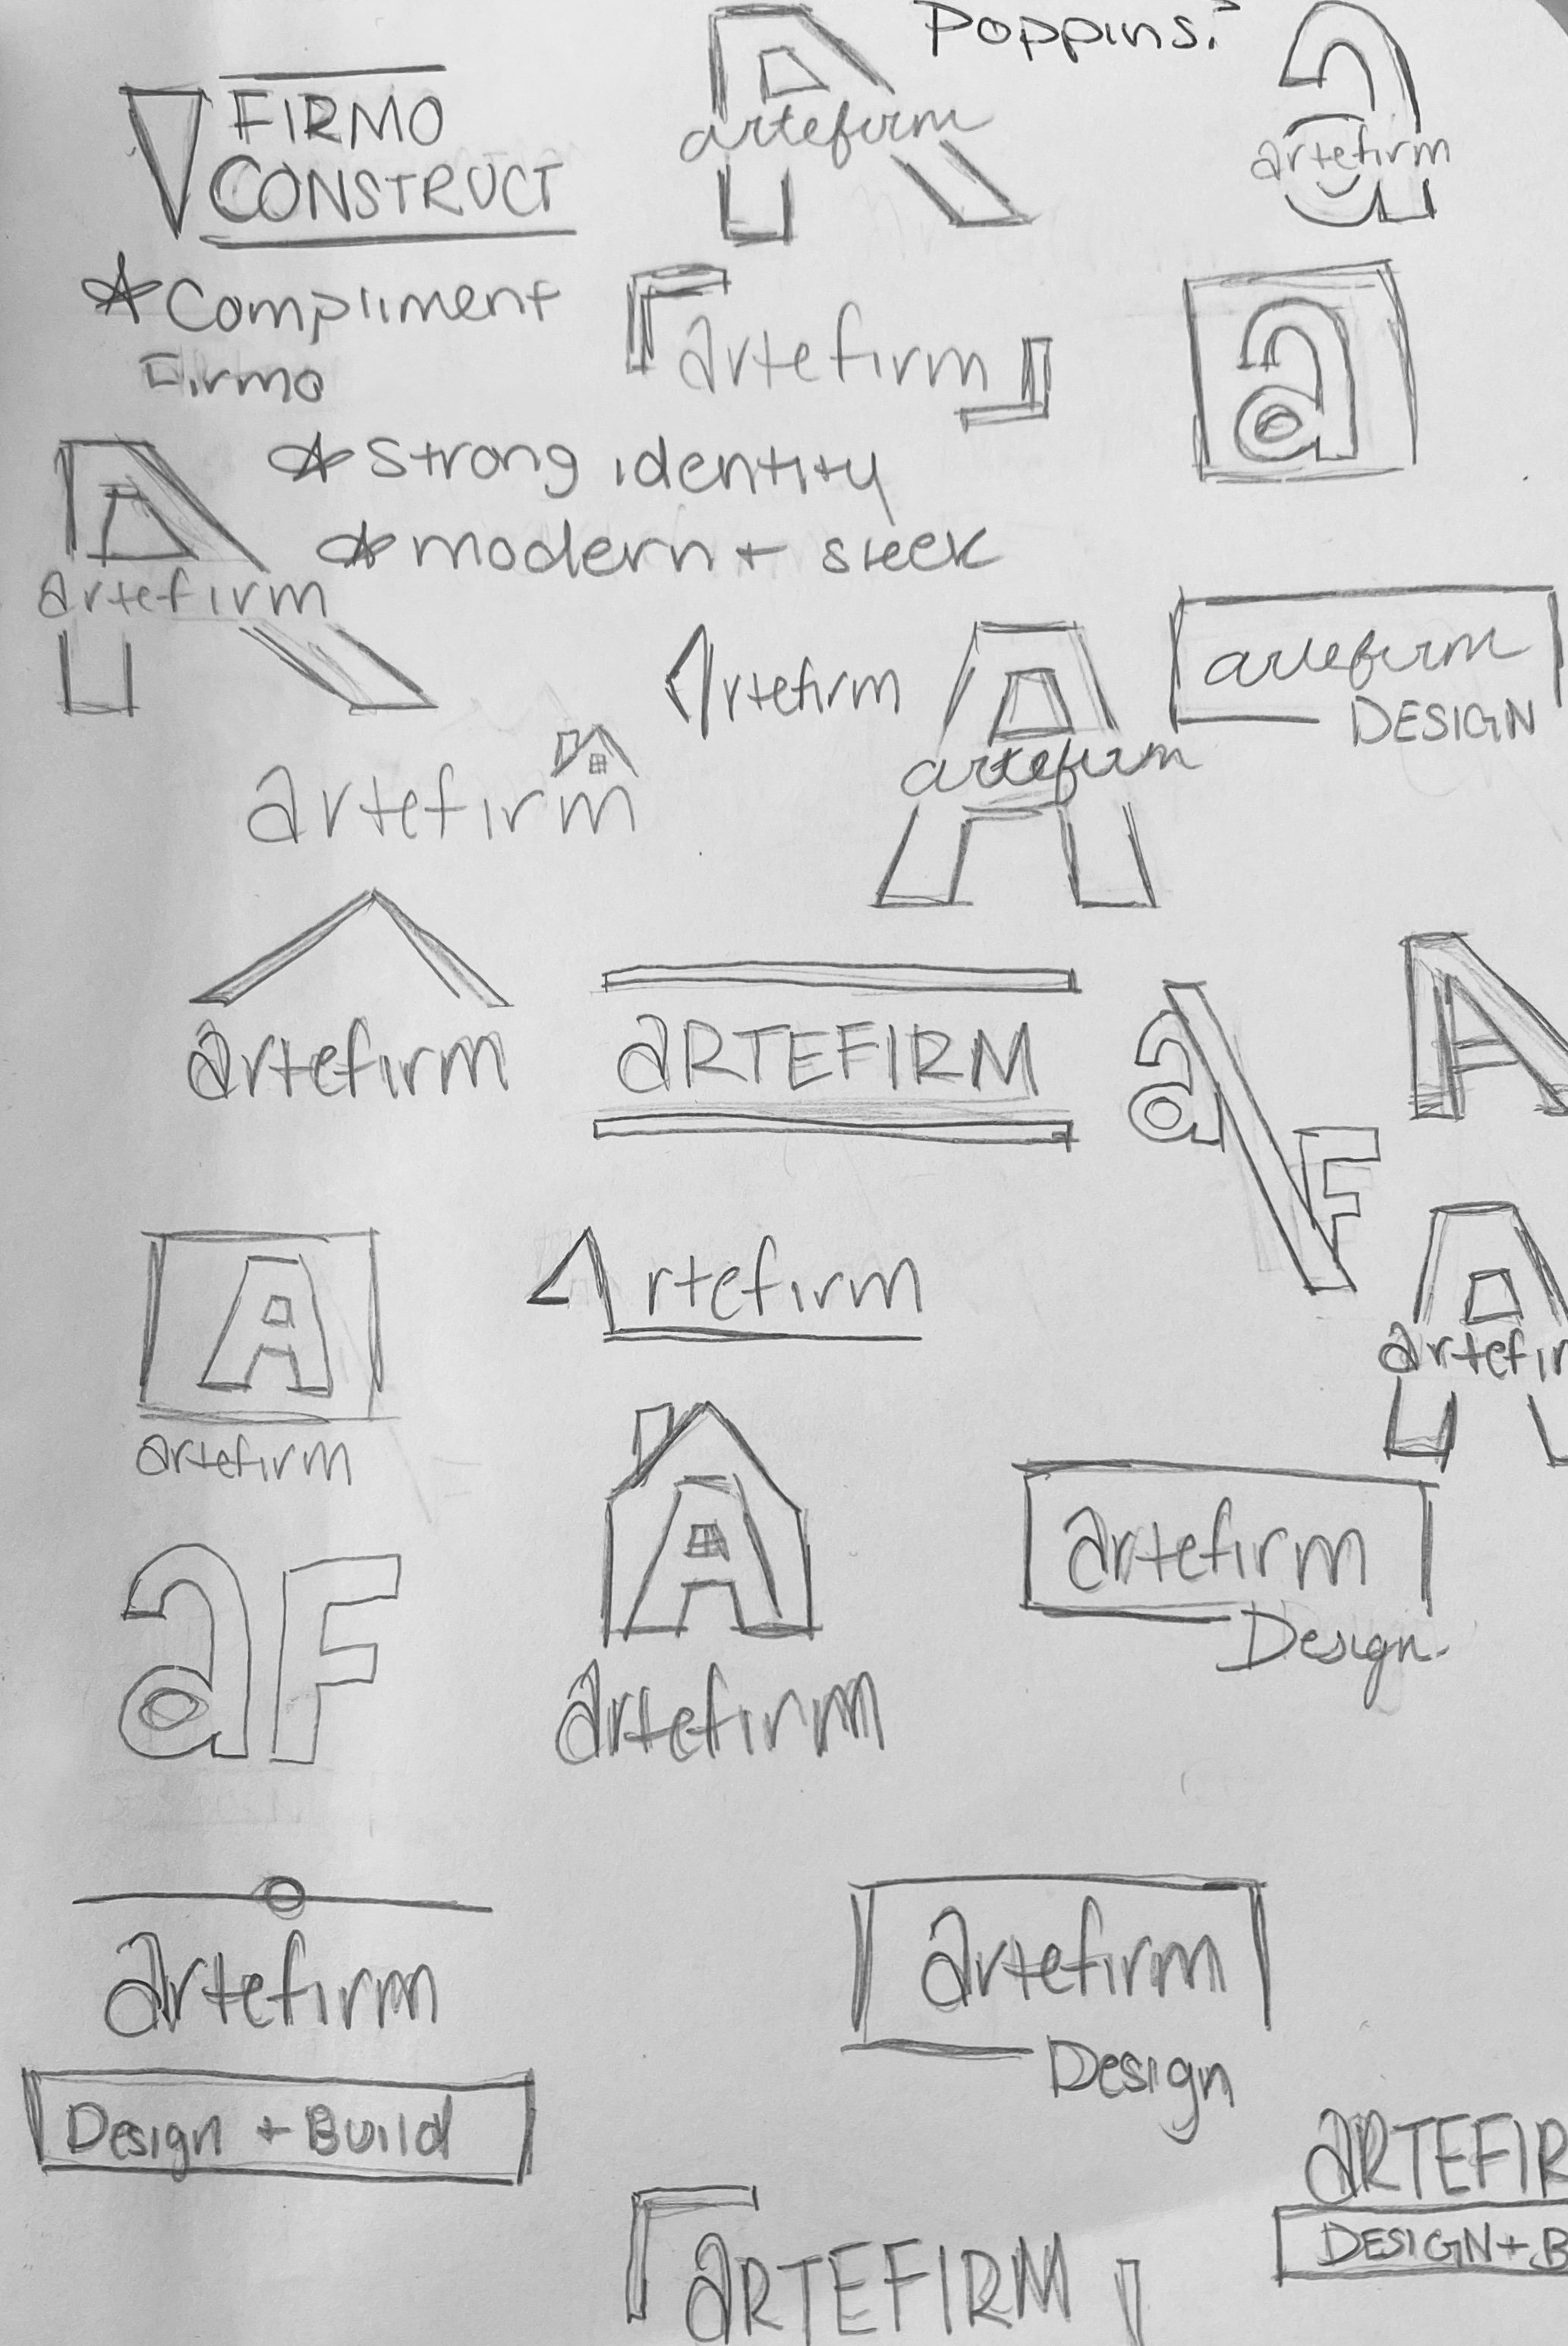 Poppins?
FIRMO
CONSTRUCT
artefirm
artefirm
* Compliment
Firmo
artefirm
a
* Strong identity
* modern + sleek
artefirm
Artefirm
artefirm
artefirm
DESIGN
artefirm
artefirm
aRTEFIRM
a\F
A
A
artefirm
Artefirm
artefir
A
artefirm
artefirm
Design.
aF
artefirm
Design + Build
artefirm
Design
aRTEFIRM
aRTEFIR
DESIGN + B